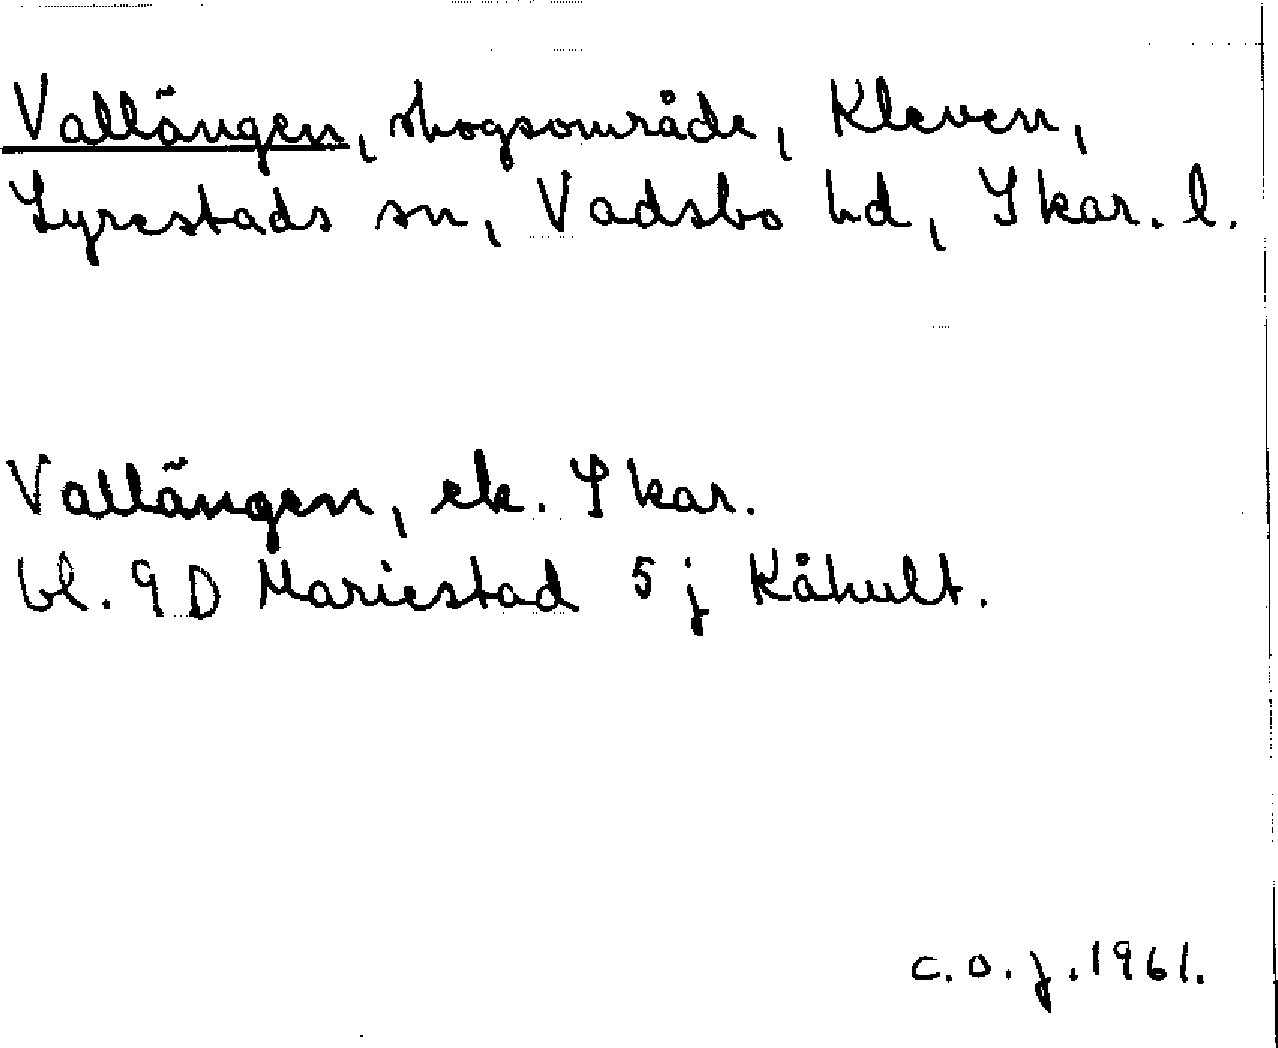 Vallängen, skogsområde, Kleven,
Lyrestads sn, Vadsbo hd, Skar. l.
Vallängen, ek. Skar.
bl. 9 D Mariestad 5 j Kåhult.
C.O.J. 1961.